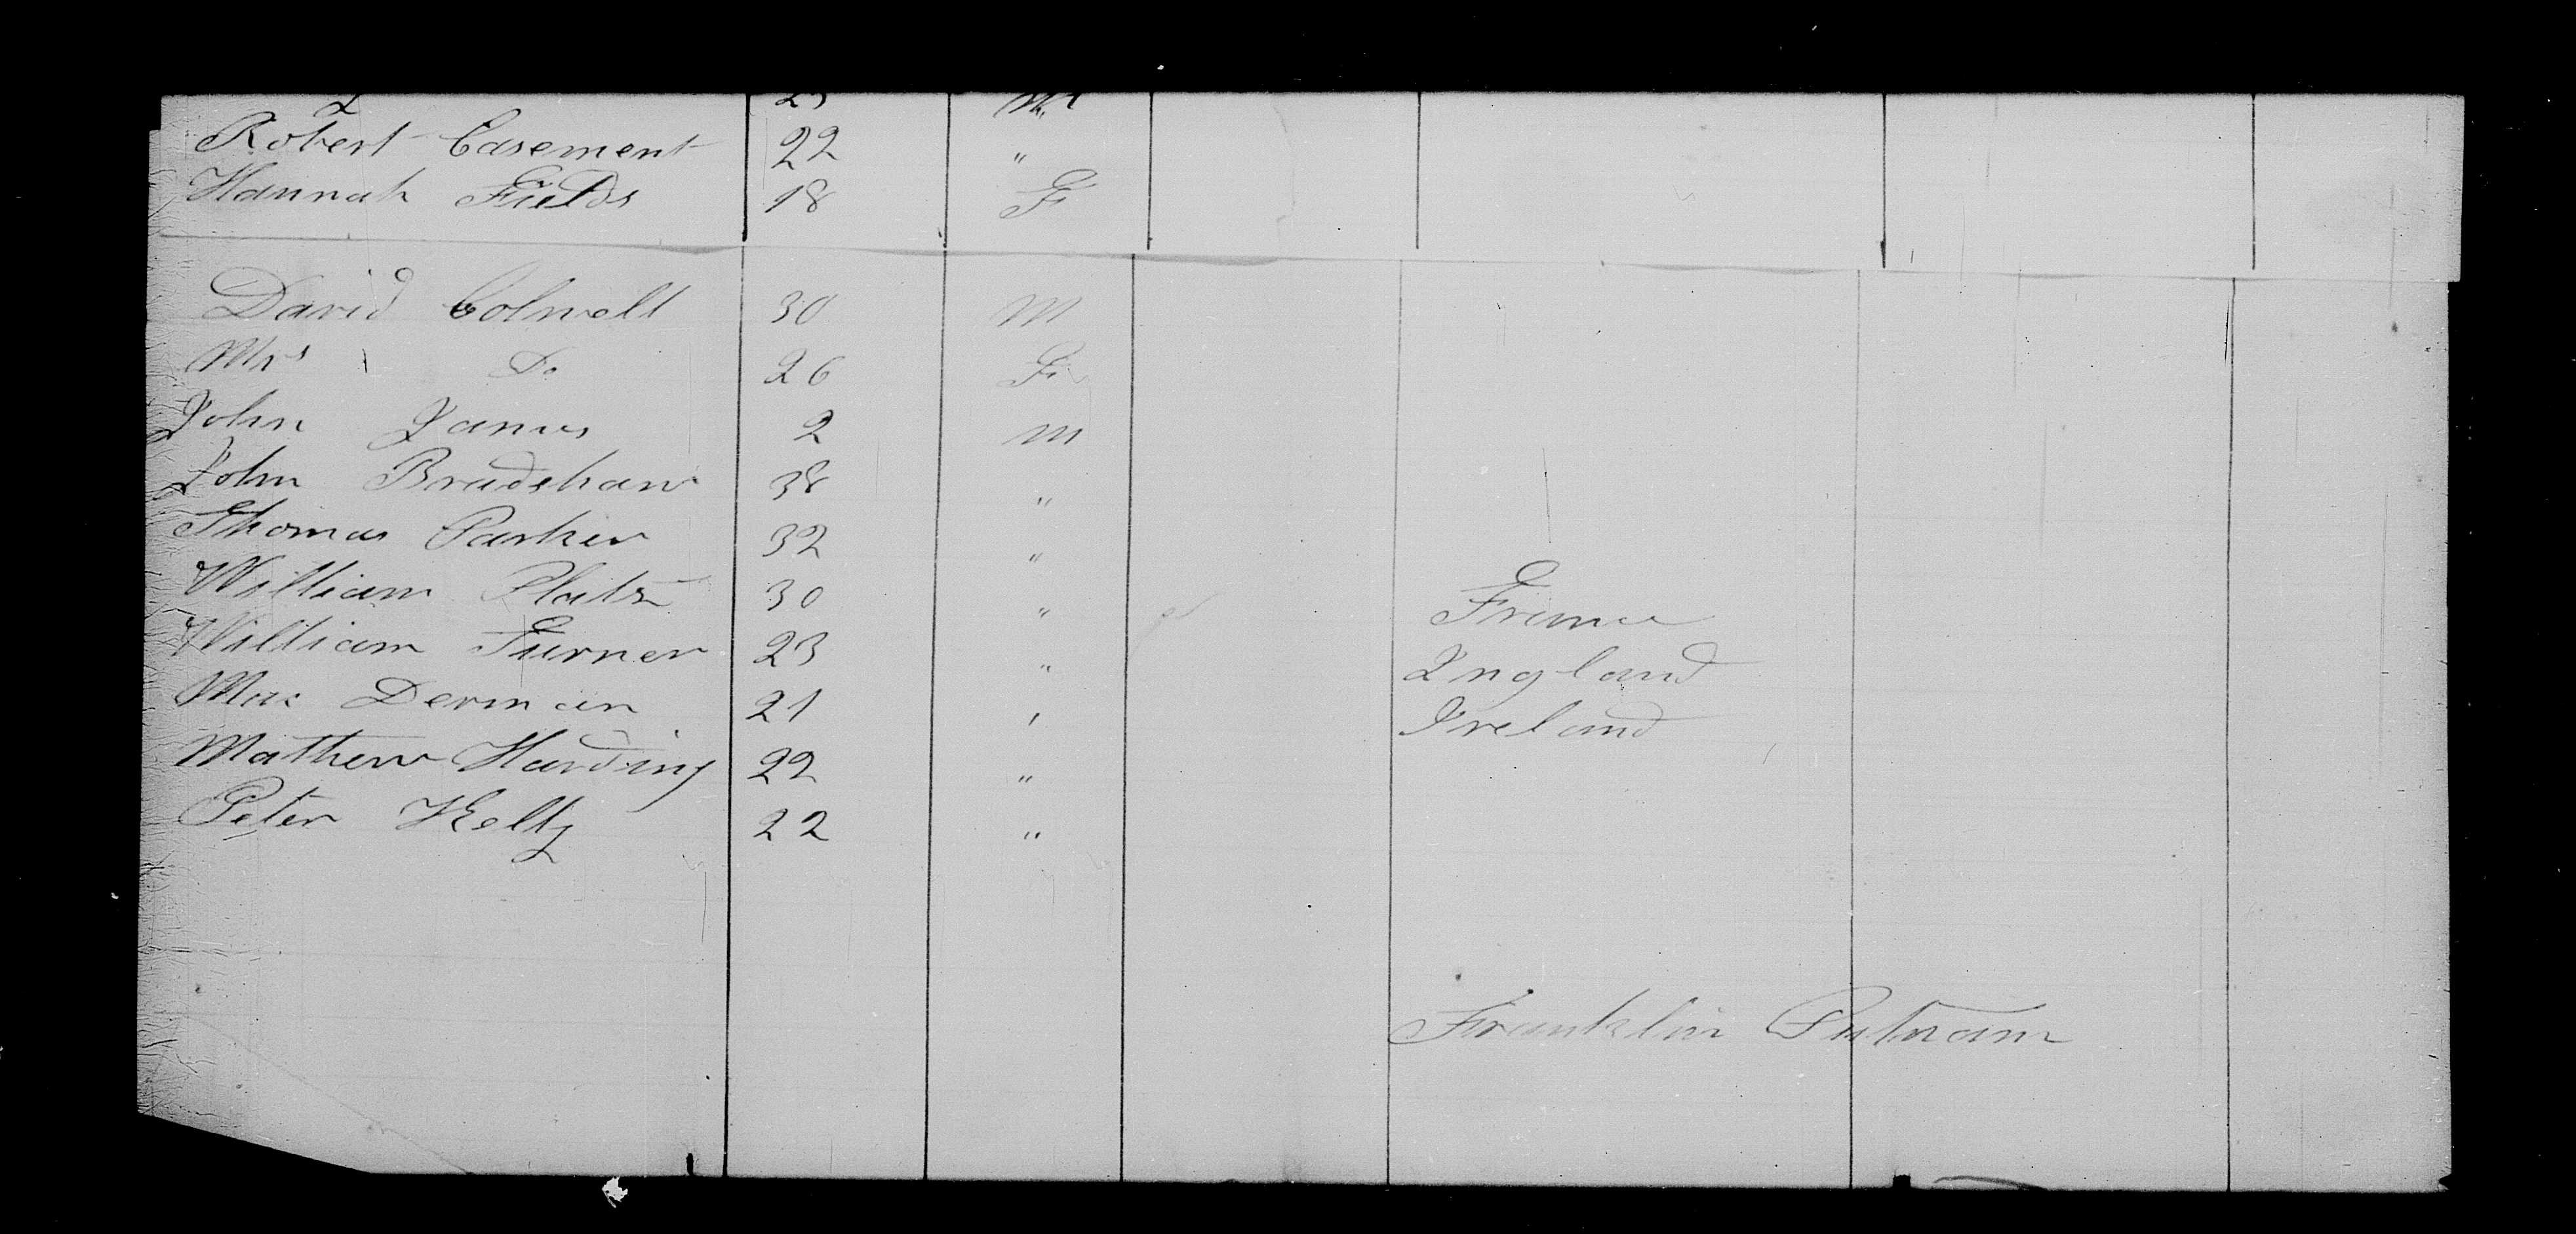 Robert Casement 22 "
Hannah Fields 18 F
David Colwell 30 M
Mrs Do 26 F
John James 2 m
John Bradshaw 38 "
Thomas Parker 32 "
William 30 " France
William Turner 23 " England
Max Derman 21 " Ireland
Mathew Harding 22 "
Peter Kelly 22 "
Franklin Putnam